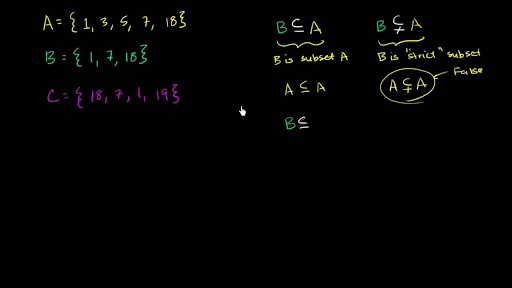 A = { 1, 3, 5, 7, 18}
B = { 1, 7, 18}
C = { 18, 7, 1, 19}
B ⊆ A
B is subset A
A ⊆ A
B ⊆
B ⊊ A
B is "strict" subset
A ⊊ A
False